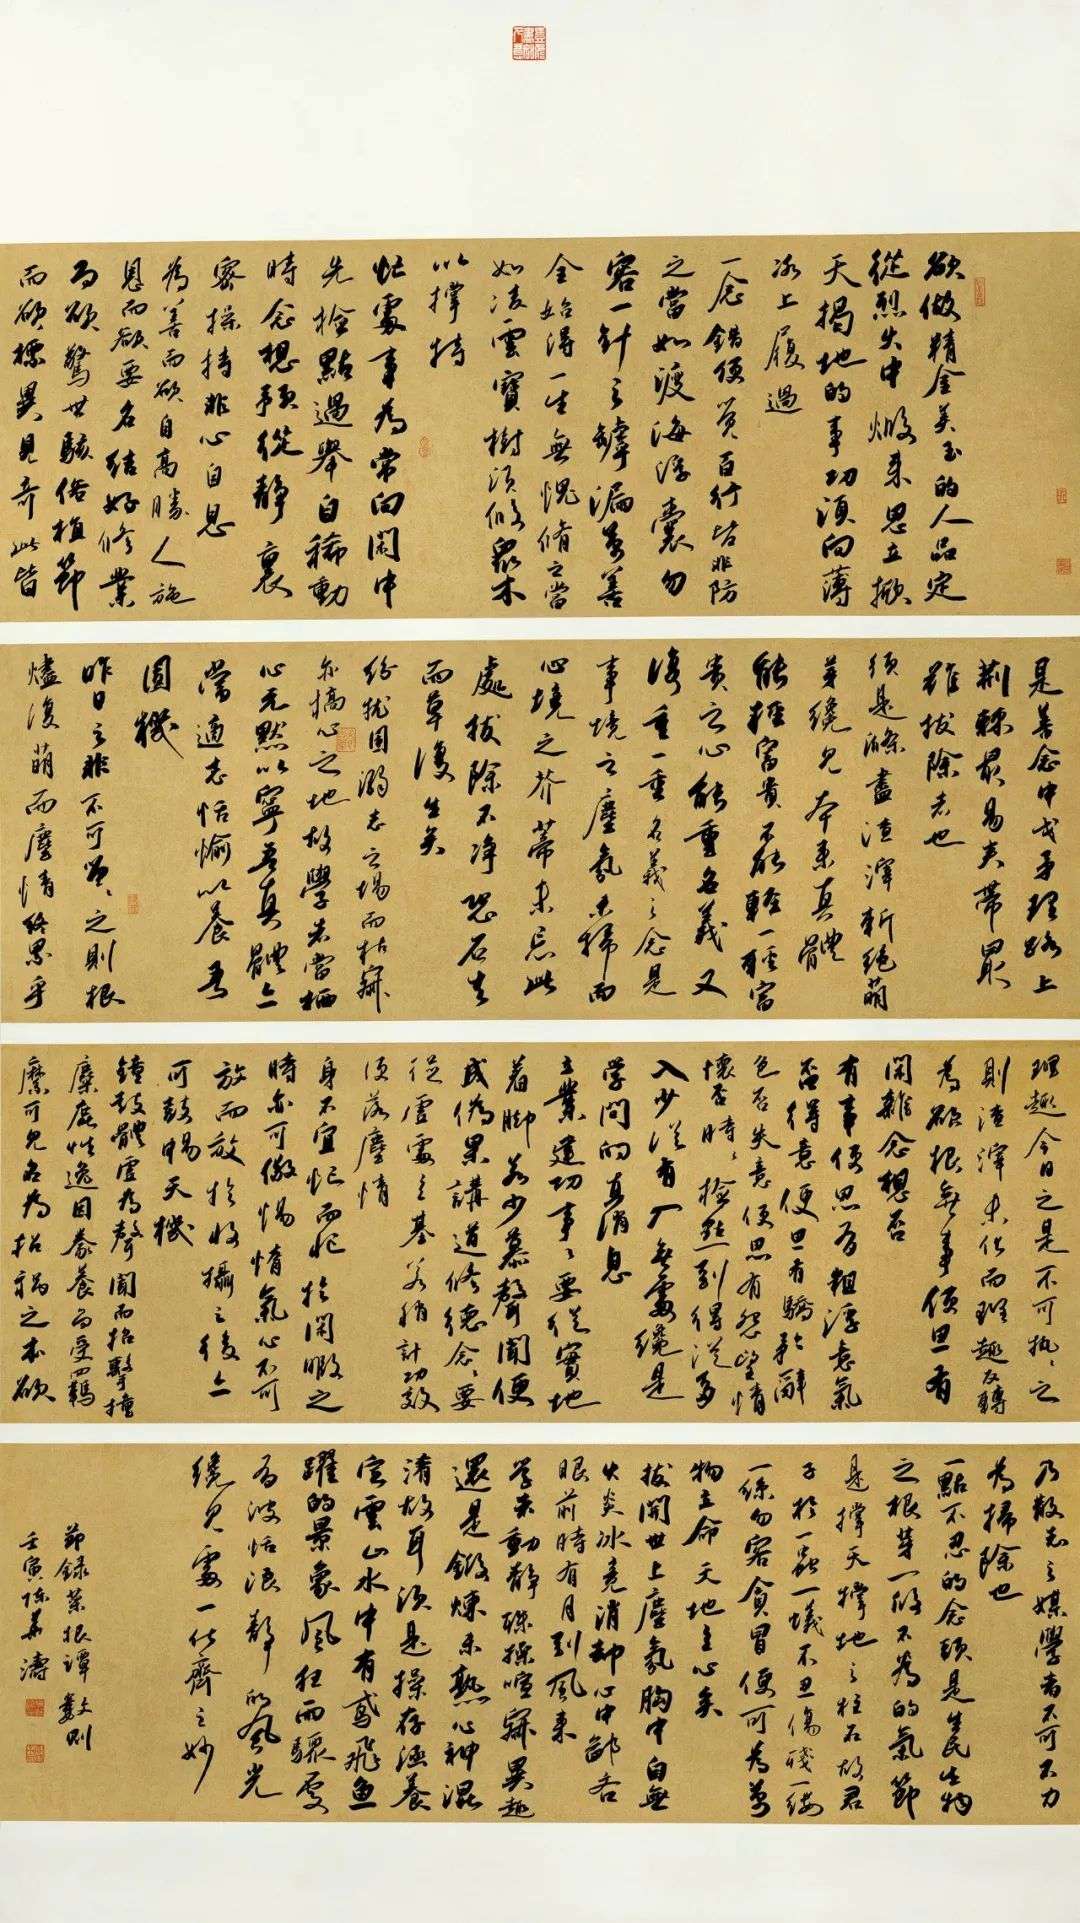 欲做精金美玉的人品定
從烈火中煅来思立掀
天揭地的事功須向薄
冰上履過
一念錯便覺百行皆非防
之當如渡海浮囊勿
容一針之罅漏萬善
全始得一生無愧脩之當
如凌雲寶樹須假衆木
以撑持
忙處事為常向閑中
先檢點過舉自稀動
時念想預從静裏
密操持非心自息
為善而欲自高勝人施
恩而欲要名结好修業
而欲驚世駭俗植節
而欲標異見奇此皆
是善念中戈矛理路上
荆棘最易夹帶最
難拔除者也
須是滌盡渣滓斬绝萌
芽纔見本来真體
能輕富贵不能輕一輕富
贵之心能重名義又
復重一重名義之念是
事境之塵氛未掃而
心境之芥蒂未忘此
處拔除不净恐石去
而草復生矣
纷扰固溺志之場而枯寂
亦槁心之地故學者當栖
心元默以寧吾真體亦
當適志恬愉以養吾
圆機
昨日之非不可留〻之則根
燼復萌而塵情终累乎
理趣今日之是不可执〻之
則渣滓未化而理趣反轉
為欲根無事便思有
閑雜念想否
有事便思有粗浮意氣
否得意便思有驕矜辭
色否失意便思有怨望情
懷否時〻檢點到得從多
入少從有入無處纔是
学問的真消息
立業建功事〻要從實地
着脚若少慕聲聞便
成伪果講道修德念〻要
從虚處立基若稍計功效
便落塵情
身不宜忙而忙於閑暇之
時亦可儆惕惰氣心不可
放而放於收攝之後亦
可鼓暢天機
鐘鼓體虚為聲聞而招擊撞
麋鹿性逸因豢養而受羈
縻可見名為招祸之本欲
乃散志之媒學者不可不力
為掃除也
一點不忍的念頭是生民生物
之根芽一段不為的氣節
是撑天撑地之柱石故君
子於一蟲一蟻不忍傷殘一縷
一絲勿容貪冒便可為萬
物立命天地立心矣
拔開世上塵氛胸中自無
火炎冰竞消却心中鄙吝
眼前時有月到風来
學者動静殊操喧寂異趣
還是鍛煉未熟心神混
淆故耳須是操存涵養
定雲止水中有鸢飛魚
躍的景象風狂雨驟處
有波恬浪静的風光
纔見處一化齊之妙
節録菜根譚數則
壬寅陈華濤